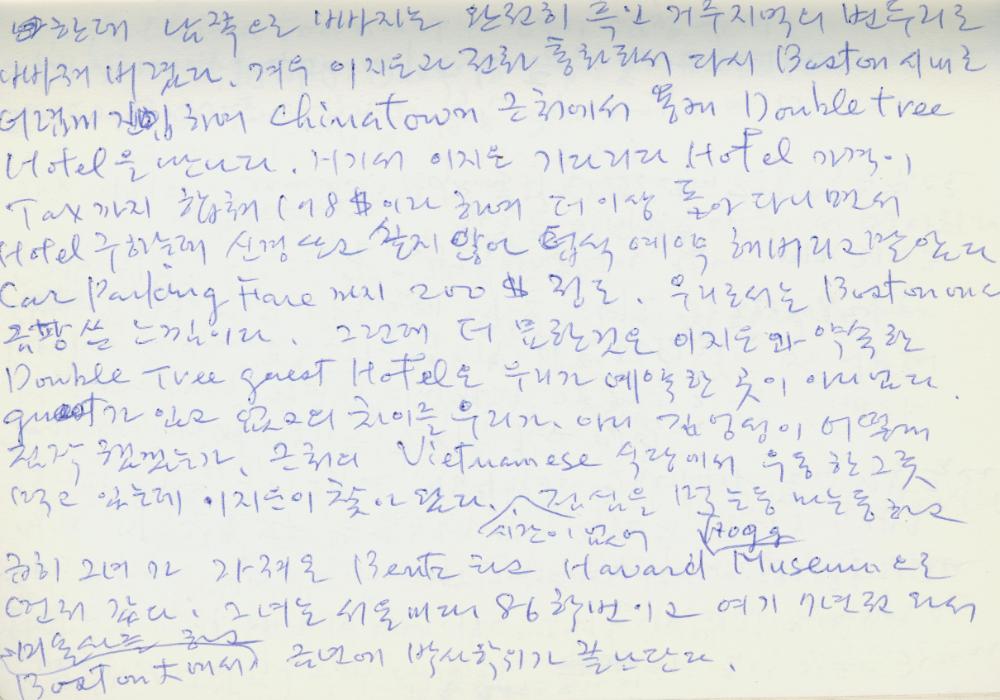 한데 남쪽으로 빠지는 완전히 흑인 거주지역의 변두리로
빠져 버렸다. 겨우 이지은과 전화 통화되어 다시 Boston 시내로
어렵게 진입하여 Chinatown 근처에서 통해 Doubletree
Hotel을 만나다. 거기서 이지은 기다리다 Hotel 가격이
Tax까지 합해 198$이라 하여 더이상 돌아다니면서
Hotel 구하는데 신경쓰고 싶지 않아 덥석 예약 해버리고 말았다
Car Parking Fare까지 200$ 정도. 우리로서는 Boston에서
쓴 느낌이다. 그런데 더 묘한것은 이지은과 약속한
Double Tree guest Hotel은 우리가 예약한 곳이 아니었다.
guest가 있고 없고의 차이를 우리가 아니 이 어떻게
생각 했겠는가. 근처의 Vietnamese 식당에서 우동 한그릇
먹고 있는데 이지은이 찾아 왔다. 점심을 먹는둥 마는둥 하고
시간이 없어
급히 그녀가 자취로 하고 Havard Museum으로
먼저 갔다. 그녀는 서울미대 86학번이고 여기 7년전 와서
미술사를 하고
Boston大에서 금년에 박사학위가 끝난단다.